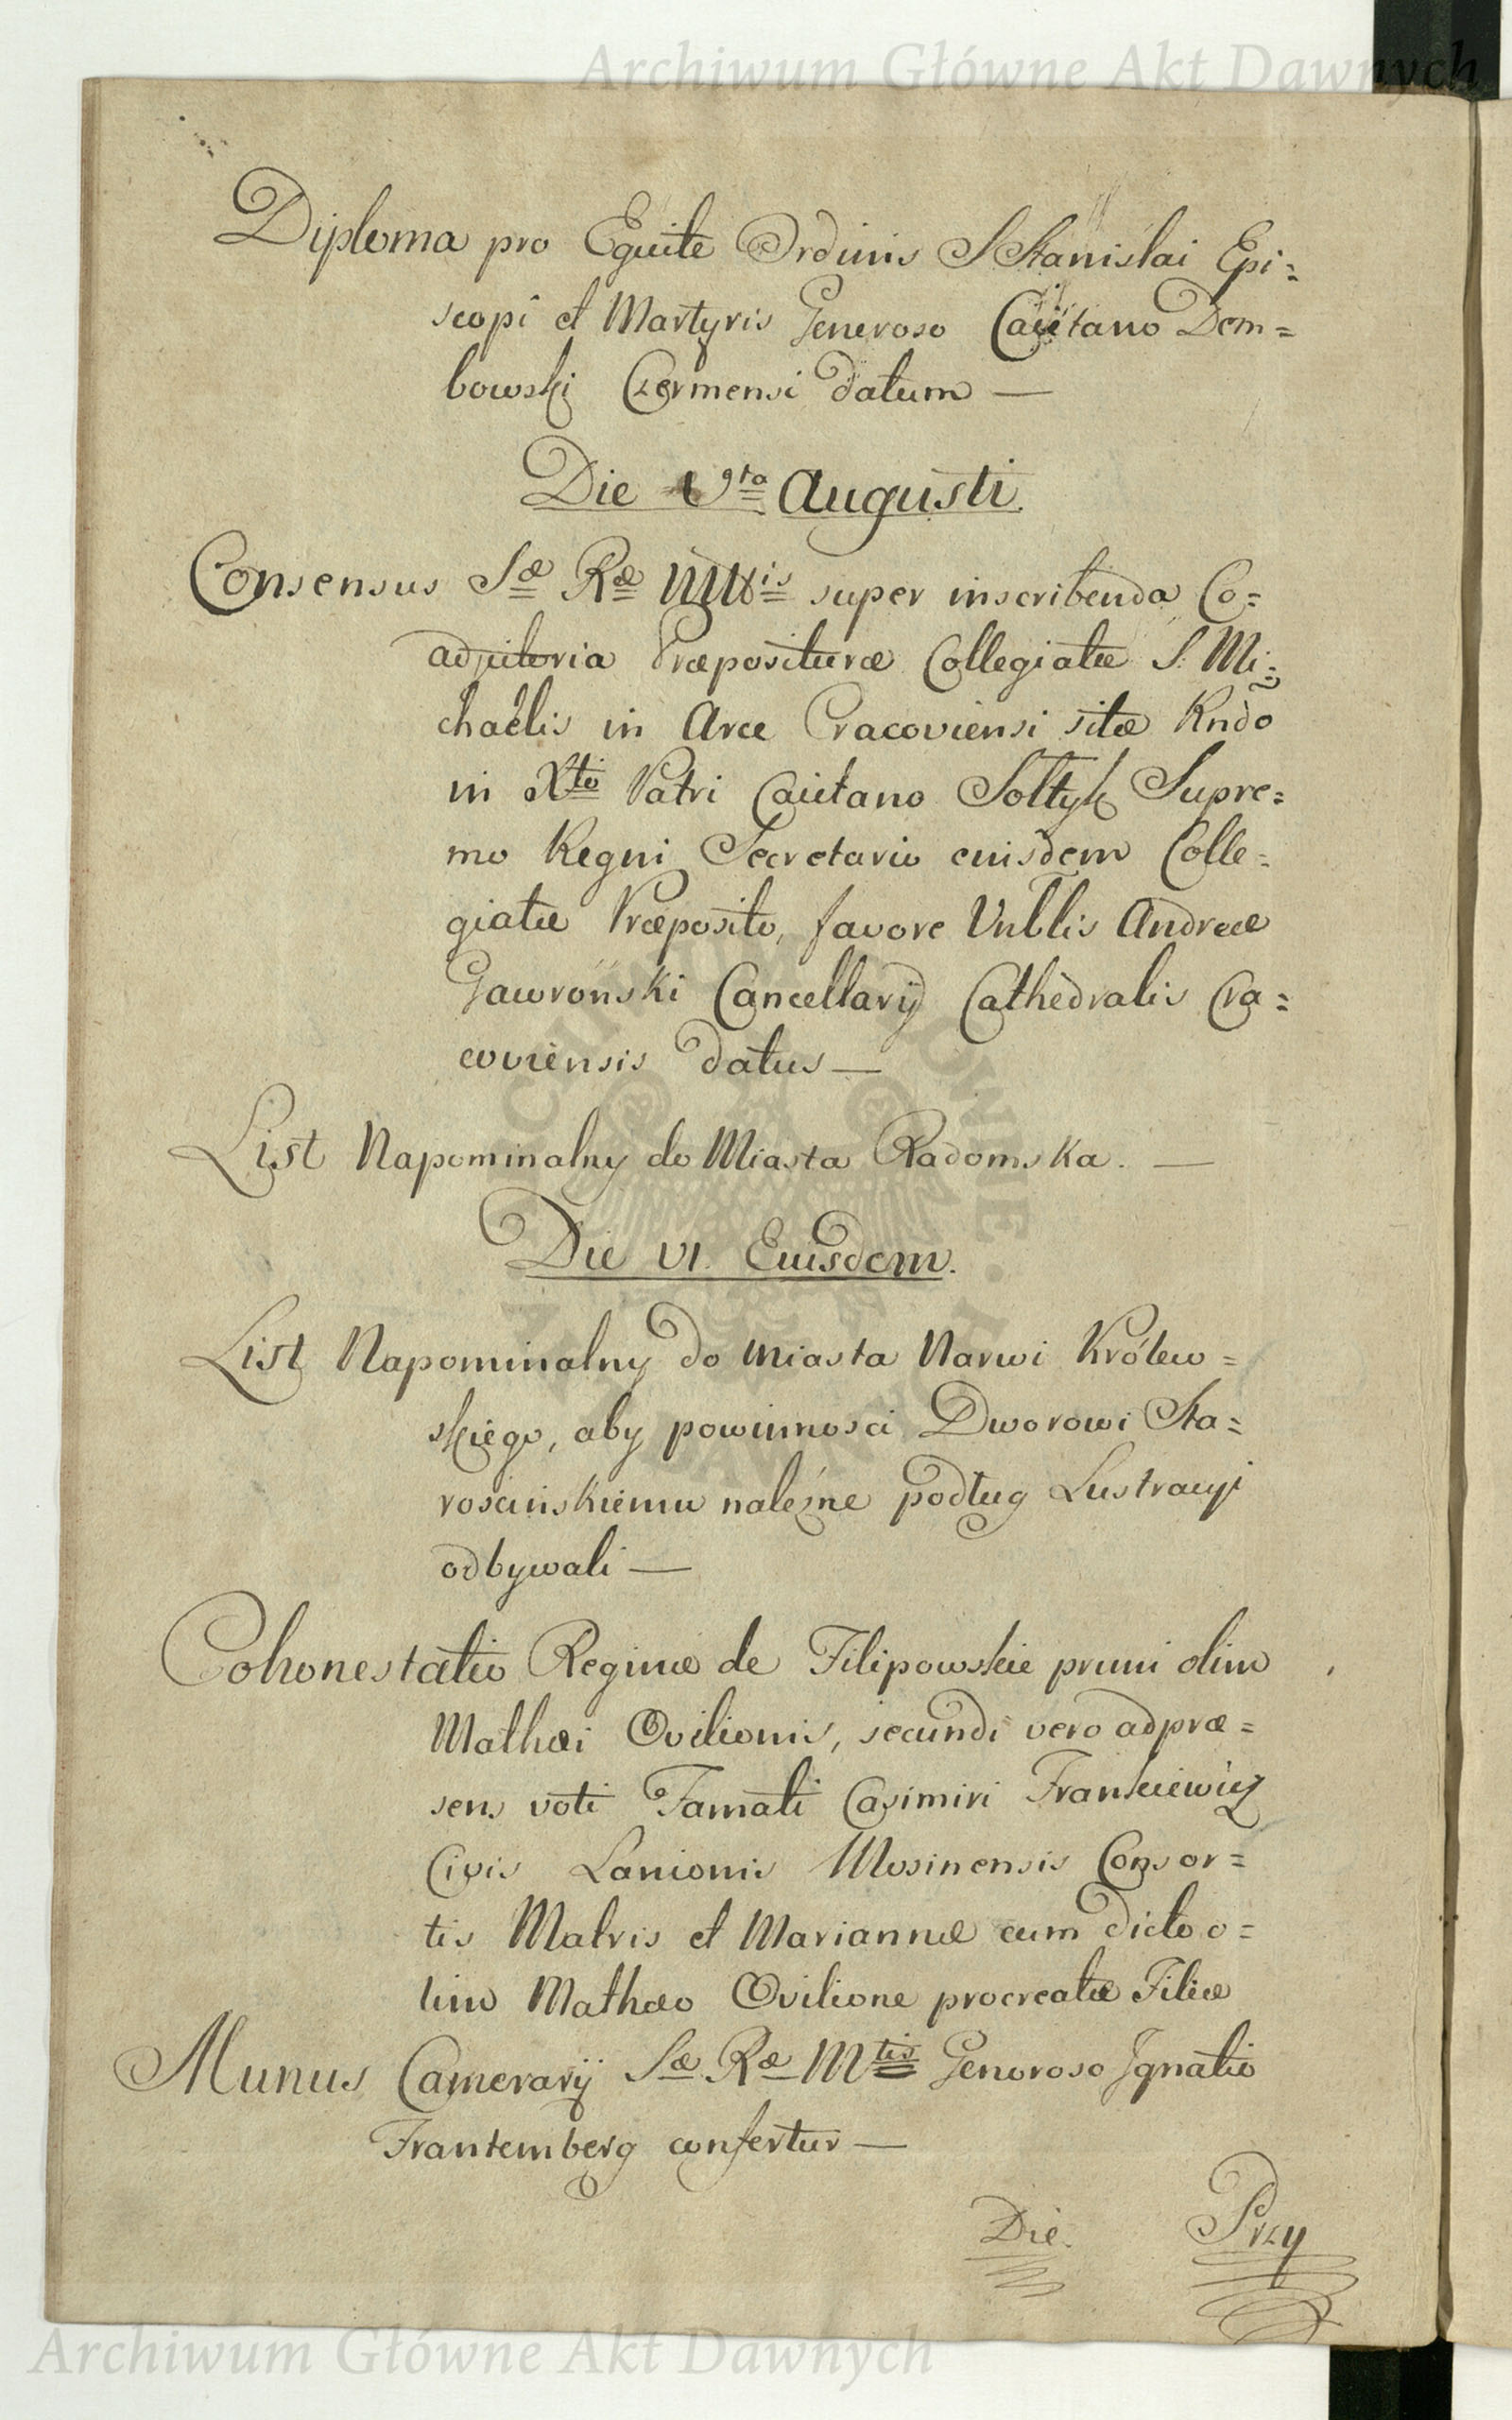 Archiwum Główne Akt Dawnych
Diploma pro Equite Ordinis S Stanislai Epi=
scopi et Martyris Generoso Caietano Dem=
bowski Czermensi datum —
Die Vta Augusti.
Consensus Sæ Ræ Mtis super inscribenda Co=
adjutoria Præposituræ Collegiatæ S. Mi=
chaëlis in Arce Cracoviensi sitæ Rndo
in Xto Patri Caietano Sołtyk Supre=
mo Regni Secretario eiusdem Colle=
giatæ Præposito, favore Vnblis Andreæ
Gawroński Cancellarij Cathedralis Cra=
coviensis datus —
List Napominalny do Miasta Radomska. —
Die VI. Eiusdem.
List Napominalny do Miasta Narwi Królew=
skiego, aby powinnosci Dworowi Sta=
roscinskiemu należne podług Lustracyi
odbywali —
Cohonestatio Reginæ de Filipowskie primi olim
Mathæi Ovilionis, secundi vero ad præ=
sens voti Famati Casimiri Frankiewicz
Civis Lanionis Mosinensis Consor=
tis Matris et Mariannæ cum dicto o=
lim Mathæo Ovilione procreatæ Filiæ
Munus Camerarij Sæ Ræ Mtis Generoso Ignatio
Frantemberg confertur —
Die. Przy
Archiwum Główne Akt Dawnych